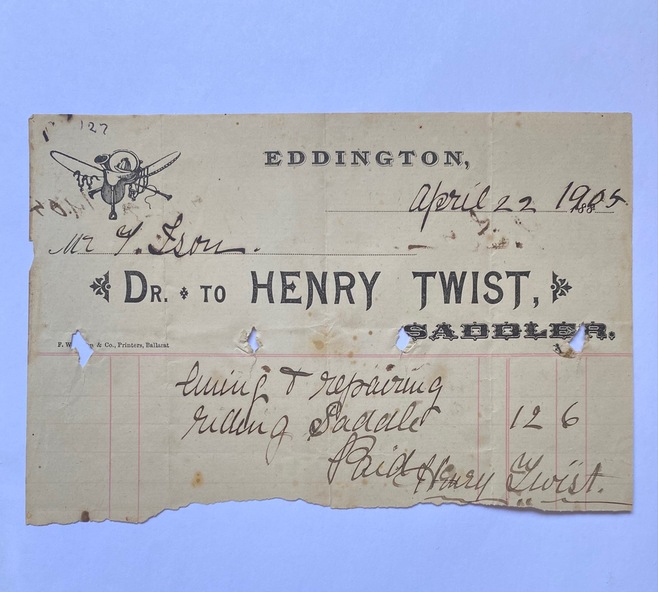 127
EDDINGTON,
April 22 1905
Mr Y. Ison.
DR. TO HENRY TWIST,
SADDLER.
& Co., Printers, Ballarat
lining & repairing
riding Saddle 12 6
Paid Henry Twist.